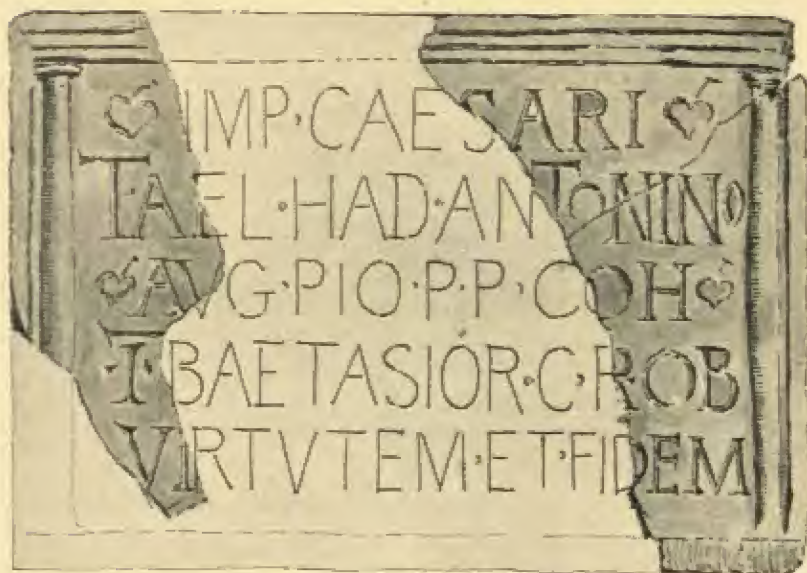 IMP·CAESARI
T·AEL·HAD·ANTONINO
AVG·PIO·P·P·COH
·I·BAETASIÓR·C·R·OB
VIRTVTEM·ET·FIDEM